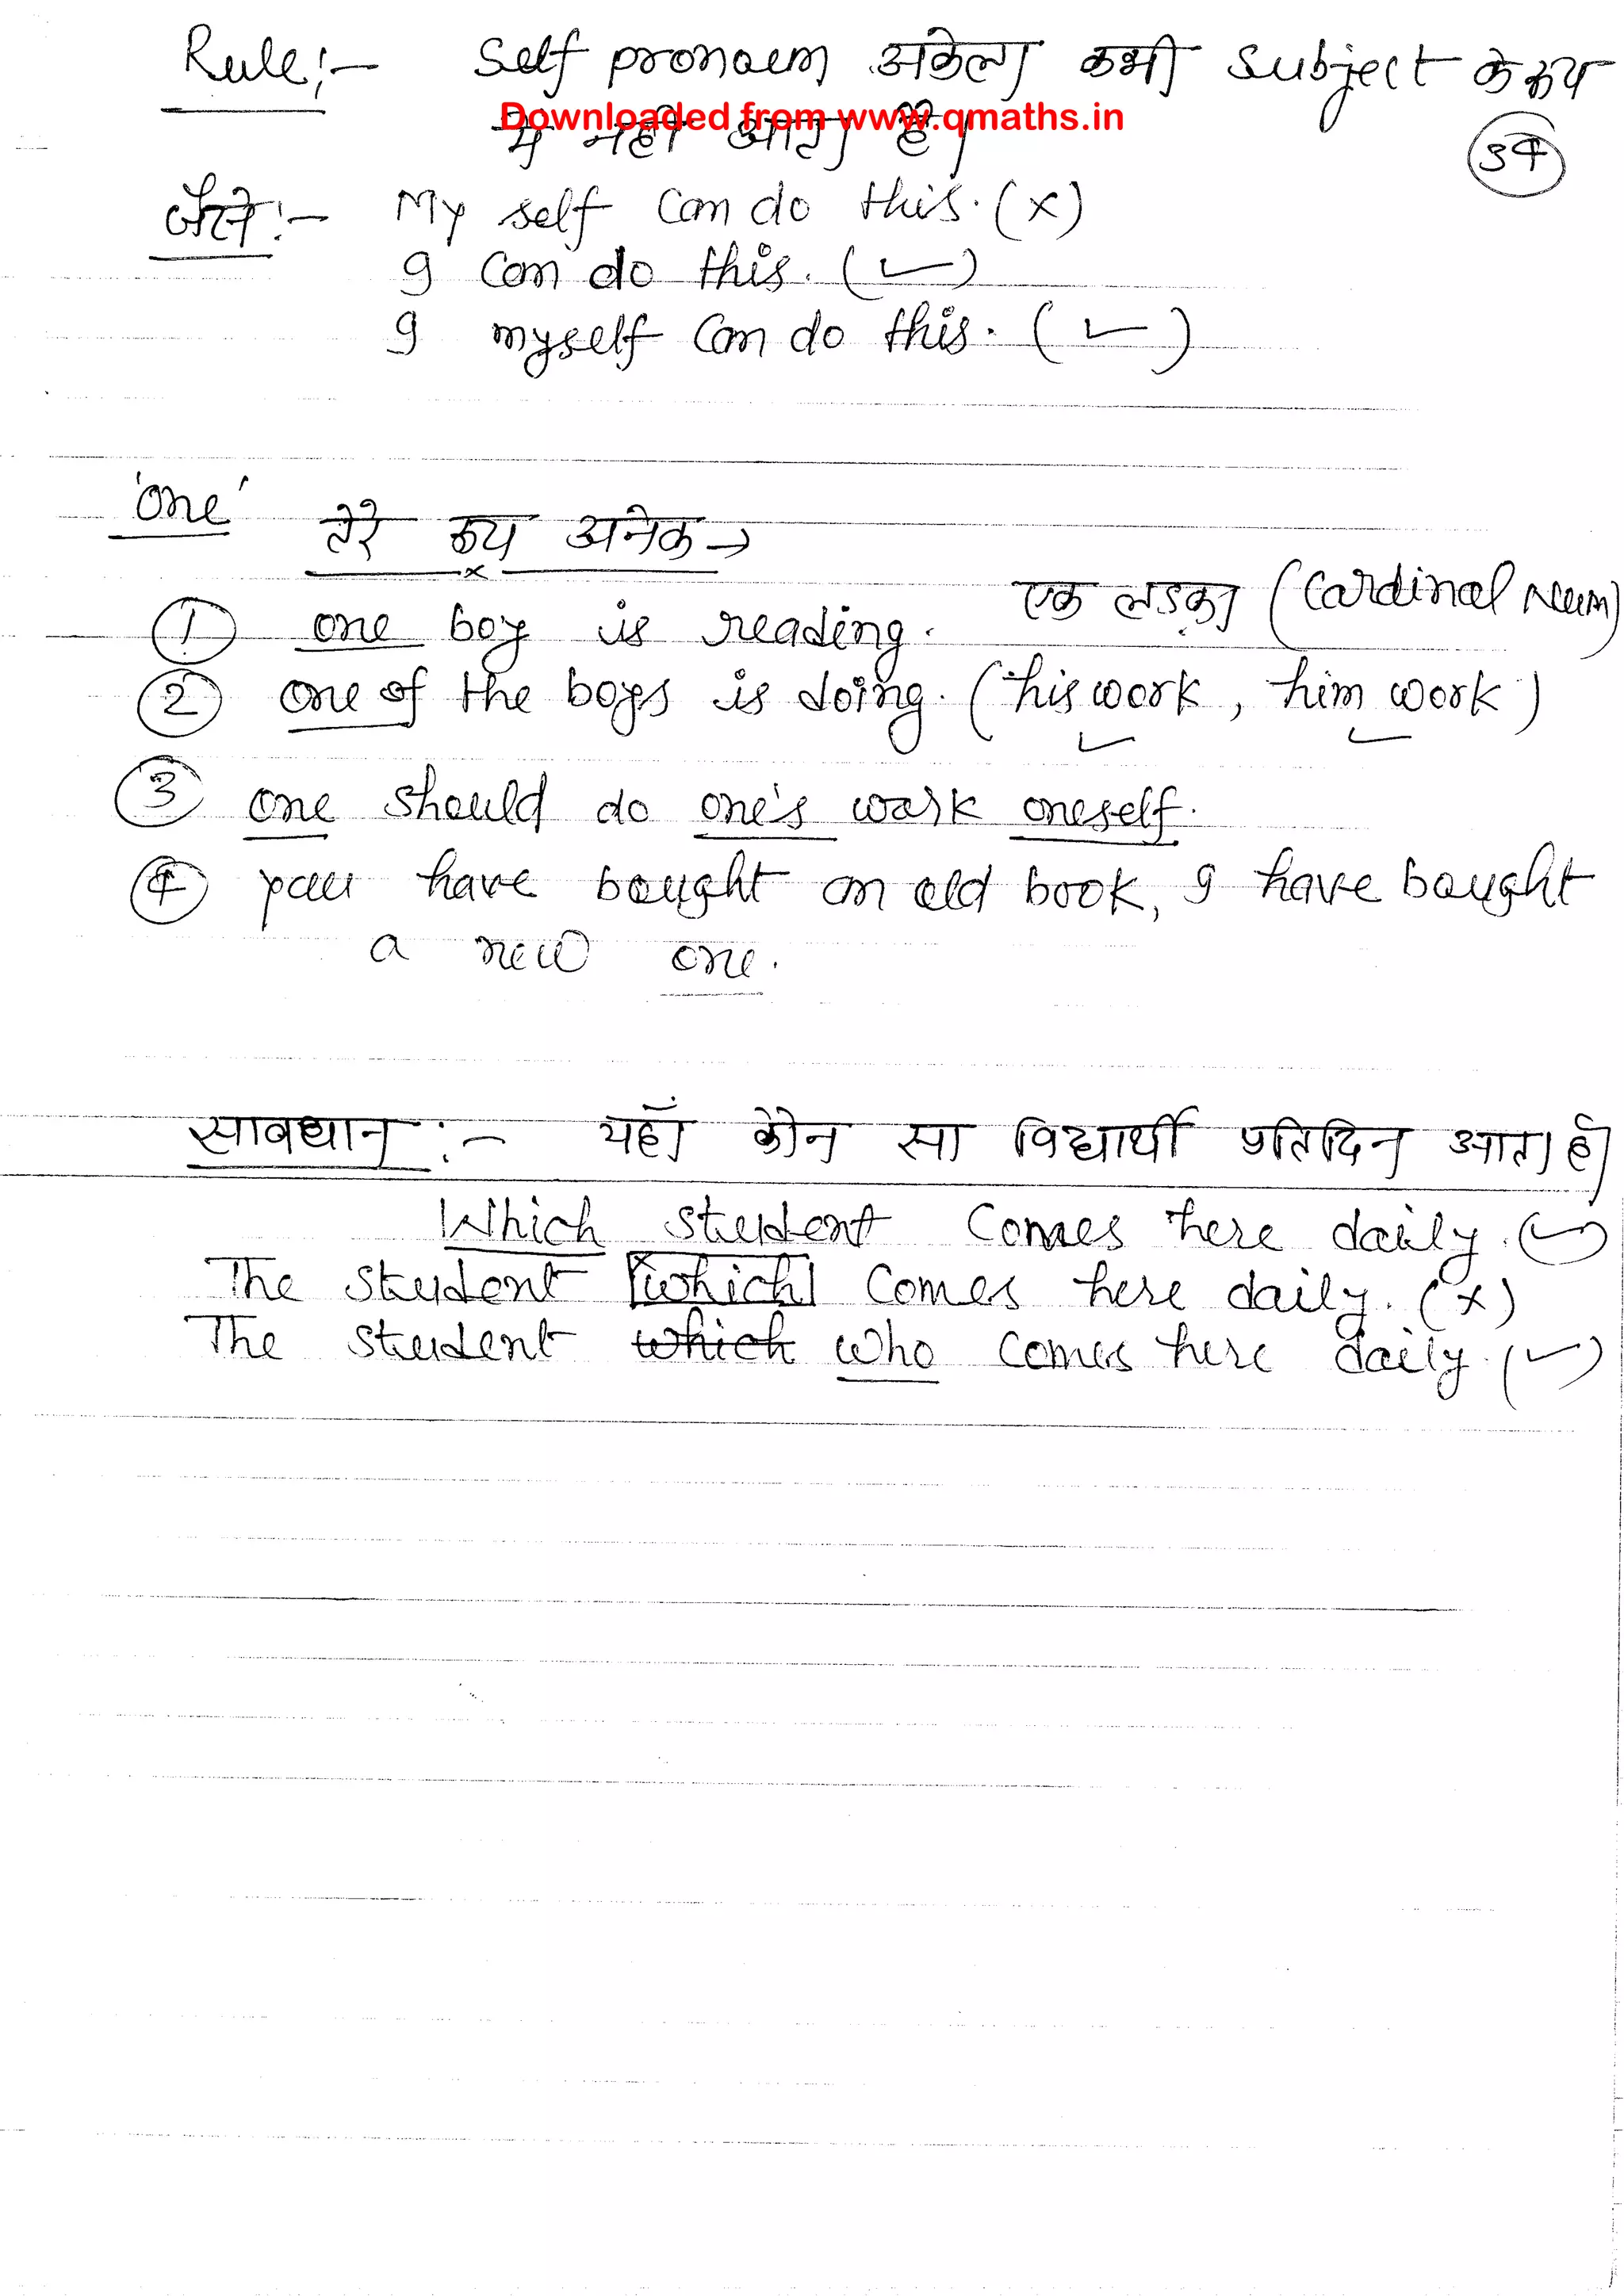 Rule:- Self pronoun अकेला कभी subject के रूप
Downloaded from www.qmaths.in
में नही आता है।
34
जैसे:- My self can do this. (×)
I can do this. (✓)
I myself can do this. (✓)
'one' तेरे रूप अनेक→
① one boy is reading. एक लडका (Cardinal Num)
② one of the boys is doing. (his work, him work)
③ one should do one's work oneself.
④ you have bought an old book, I have bought
a new one.
सावधान :- यहाँ कौन सा विद्यार्थी प्रतिदिन आता है।
Which student comes here daily. (✓)
The student which comes here daily. (×)
The student which who comes here daily. (✓)